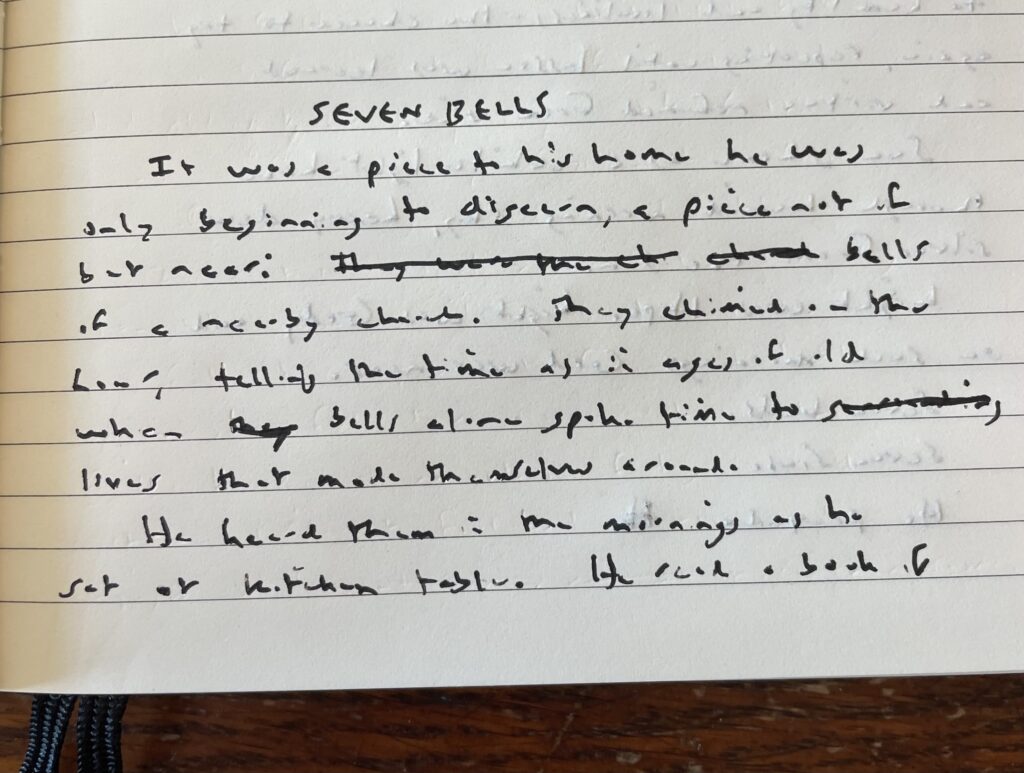 SEVEN BELLS
It was a piece to his home he was
only beginning to discern, a piece not of
but near: They were the ch church bells
of a nearby church. They chimed on the
hour, telling the time as in ages of old
when they bells alone spoke time to surrounding
lives that made themselves around.
He heard them in the mornings as he
sat at kitchen table. He read a book of